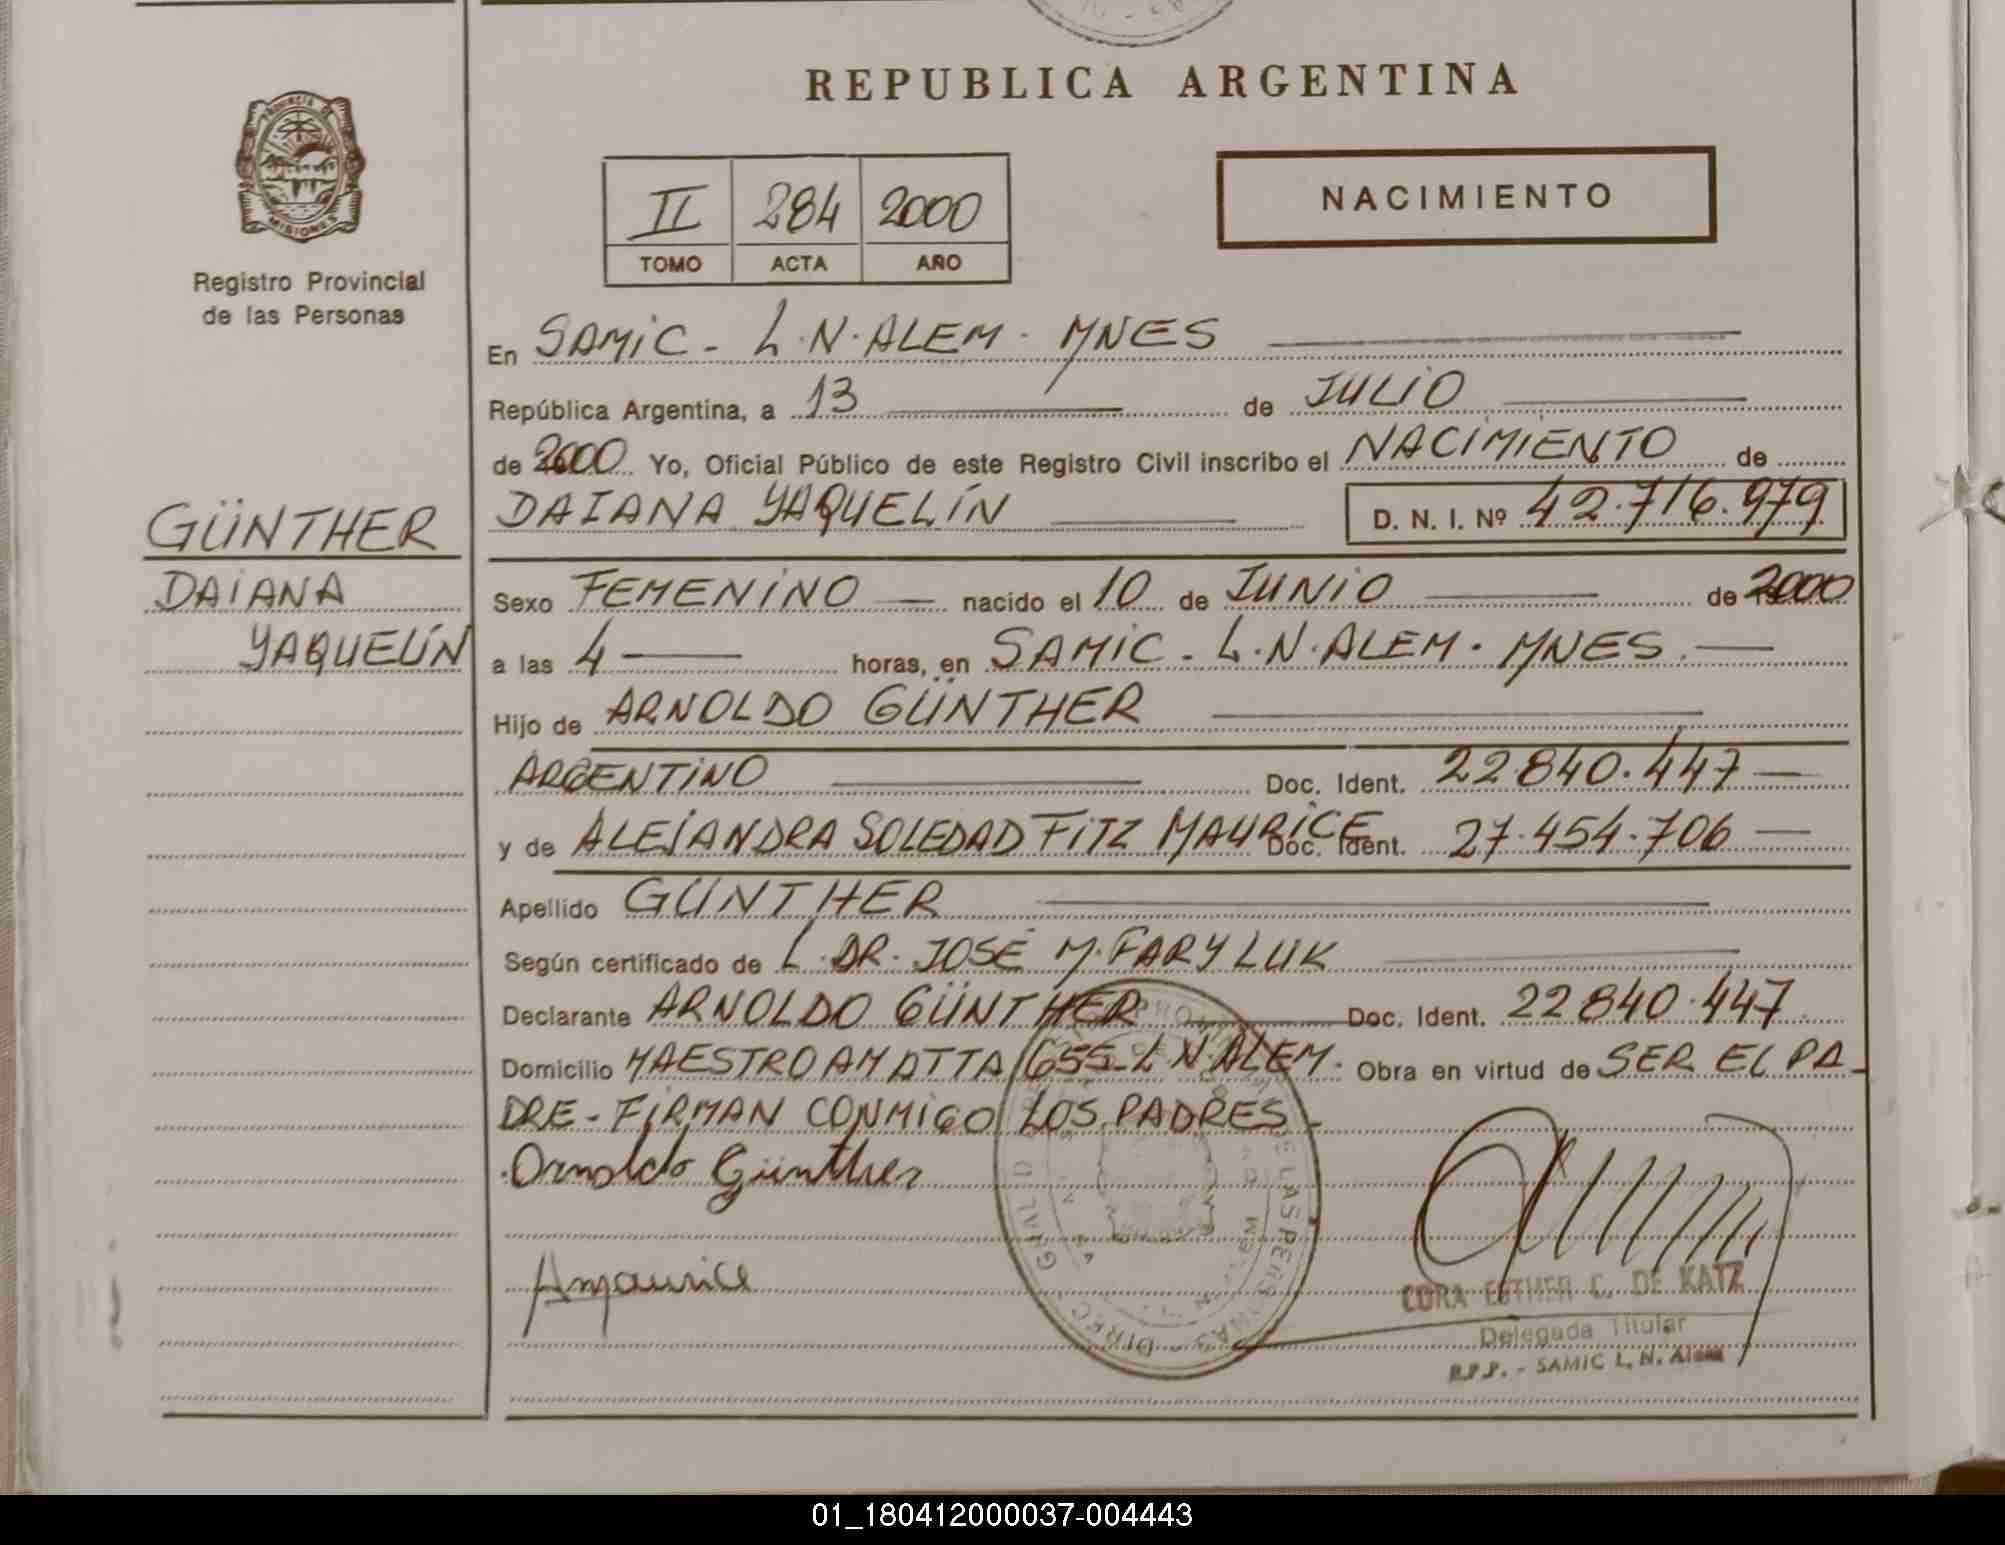 REPUBLICA ARGENTINA
PROVINCIA DE
MISIONES
Registro Provincial
de las Personas
II 284 2000
TOMO ACTA AÑO
NACIMIENTO
En SAMIC - L.N.ALEM - MNES
República Argentina, a 13 de JULIO
de 2000 Yo, Oficial Público de este Registro Civil inscribo el NACIMIENTO de
DAIANA YAQUELÍN D. N. I. Nº 42.716.979
GÜNTHER
DAIANA
YAQUELÍN
Sexo FEMENINO nacido el 10 de JUNIO de 2000
a las 4 horas, en SAMIC - L.N.ALEM - MNES
Hijo de ARNOLDO GÜNTHER
ARGENTINO Doc. Ident. 22.840.447
y de ALEJANDRA SOLEDAD FITZ MAURICE Doc. Ident. 27.454.706
Apellido GÜNTHER
Según certificado de L. DR. JOSÉ M. FARYLUK
Declarante ARNOLDO GÜNTHER Doc. Ident. 22840.447
Domicilio MAESTRO AMATTA 655-L N.ALEM. Obra en virtud de SER EL PA-
DRE - FIRMAN CONMIGO LOS PADRES -
Arnoldo Günther
Amaurice
CORA ESTHER C. DE KATZ
Delegada Titular
R.P.P. - SAMIC L. N. Alem
01_180412000037-004443